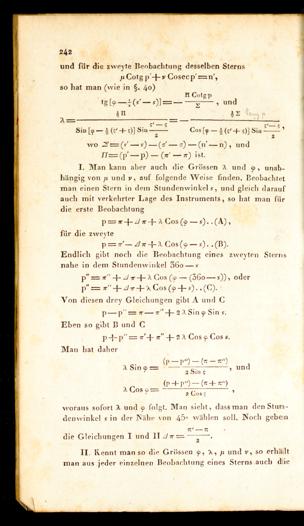 242
und für die zweyte Beobachtung desselben Sterns
μ Cotg p′ + ν Cosec p′ = n′,
so hat man (wie in §. 40)
tg [φ − ½ (s′ − s)] = − Π Cotg p / Σ , und
λ = ½ Π / Sin [φ − ½ (t′ + t)] Sin (t′ − t)/2 = − ½ Σ / Cos [φ − ½ (t′ + t)] Sin (t′ − t)/2 ,
wo Σ = (s′ − s) − (σ′ − σ) − (n′ − n), und
Π = (p′ − p) − (π′ − π) ist.
I. Man kann aber auch die Grössen λ und φ, unab-
hängig von μ und ν, auf folgende Weise finden. Beobachtet
man einen Stern in dem Stundenwinkel s, und gleich darauf
auch mit verkehrter Lage des Instruments, so hat man für
die erste Beobachtung
p = π + Δπ + λ Cos (φ − s) . . (A),
für die zweyte
p = π′ − Δπ + λ Cos (φ − s) . . (B).
Endlich gibt noch die Beobachtung eines zweyten Sterns
nahe in dem Stundenwinkel 360 − s
p″ = π″ + Δπ + λ Cos (φ − (360 − s)), oder
p″ = π″ + Δπ + λ Cos (φ + s) . . (C).
Von diesen drey Gleichungen gibt A und C
p − p″ = π − π″ + 2 λ Sin φ Sin s.
Eben so gibt B und C
p + p″ = π′ + π″ + 2 λ Cos φ Cos s.
Man hat daher
λ Sin φ = (p − p″) − (π − π″) / 2 Sin s , und
λ Cos φ = (p + p″) − (π + π″) / 2 Cos s ,
woraus sofort λ und φ folgt. Man sieht, dass man den Stun-
denwinkel s in der Nähe von 45° wählen soll. Noch geben
die Gleichungen I und II Δπ = π′ − π / 2 .
II. Kennt man so die Grössen φ, λ, μ und ν, so erhält
man aus jeder einzelnen Beobachtung eines Sterns auch die